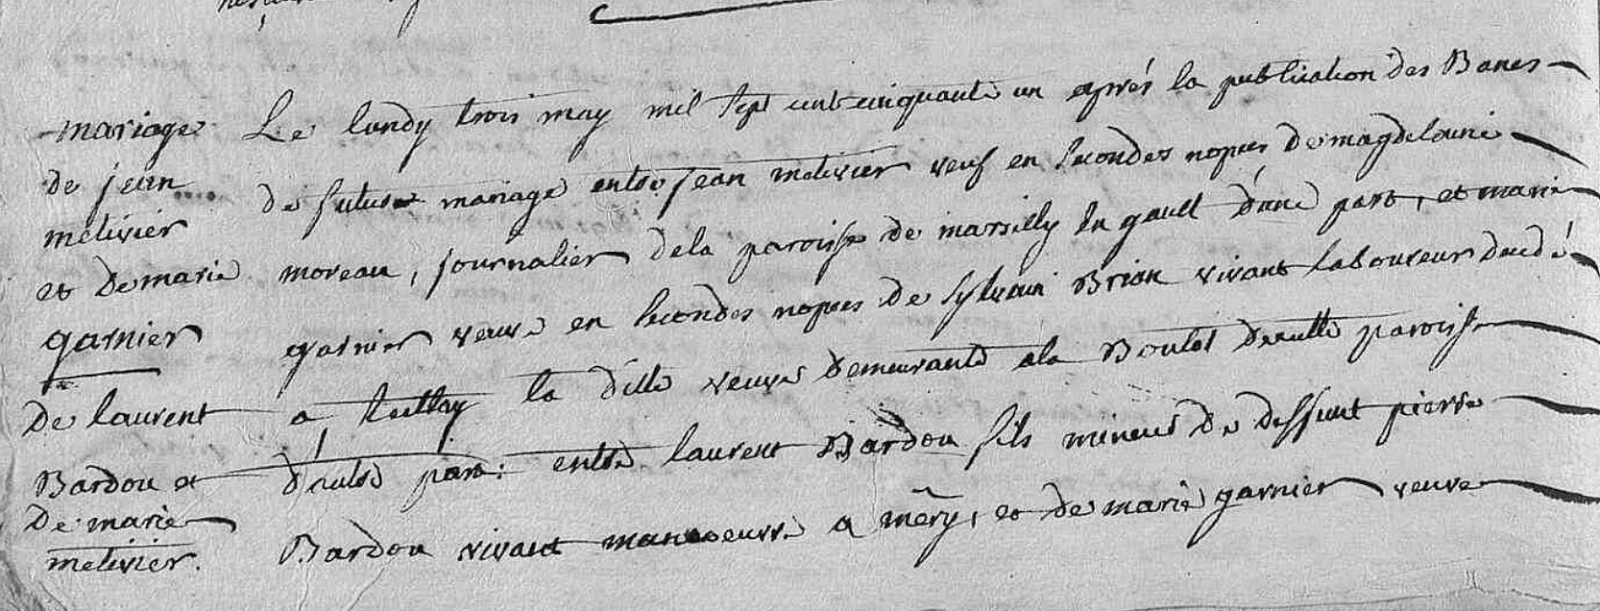 mariage
de jean
metivier
et de marie
garnier
De laurent
Bardou et
De marie
metivier.
Le lundy trois may mil sept cent cinquante un après la publication des Bancs
de futur mariage entre jean metivier veuf en secondes nopces de magdelaine
moreau, journalier dela paroisse de marsilly en gault d'une part, et marie
garnier veuve en secondes nopces de sylvain Brion vivant laboureur decedé
a la ditte veuve demeurante ala Boulot paroisse
d'autre part: entre laurent Bardou fils mineur de deffunt pierre
Bardou vivant manoeuvre a mery, et de marie garnier veuve